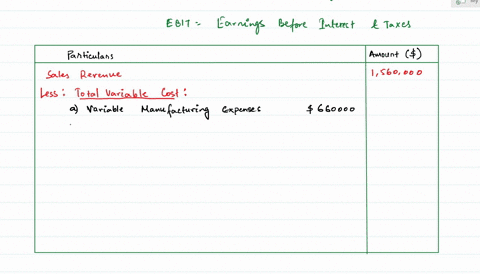 EBIT = Earnings Before Interest & Taxes
Particulars Amount ($)
Sales Revenue 1,560,000
Less: Total Variable Cost:
a) Variable Manufacturing Expenses $660000